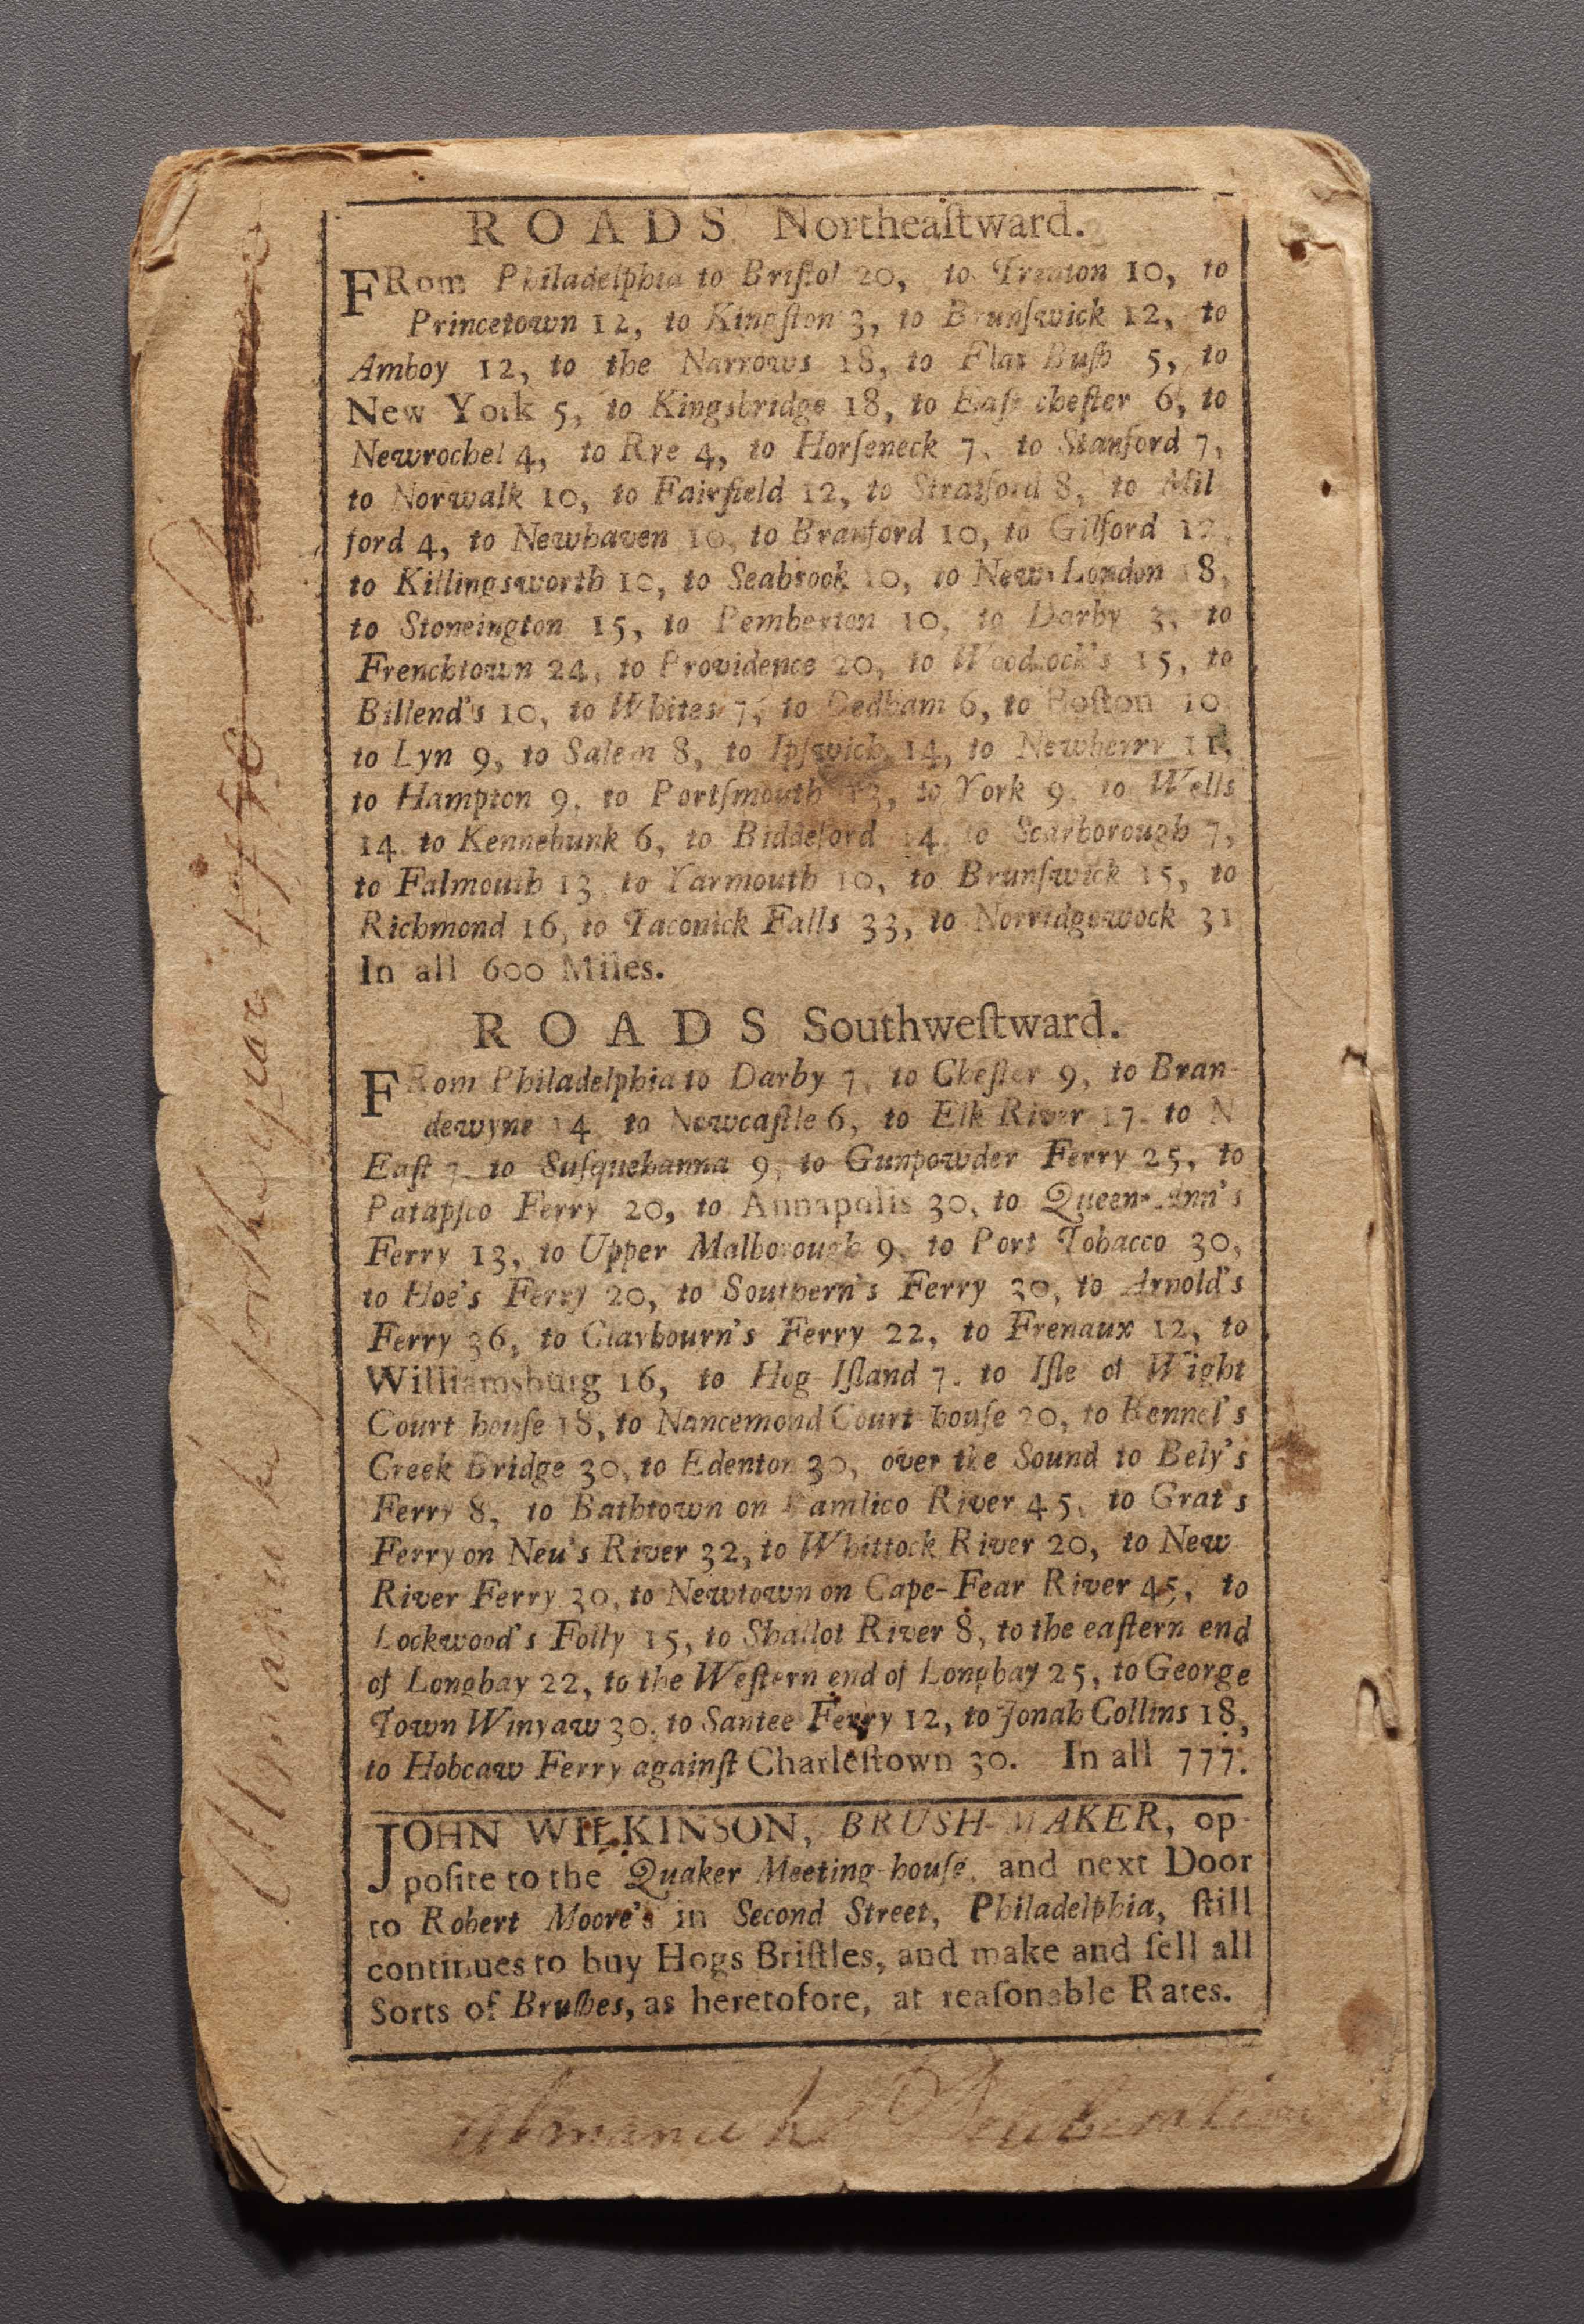 ROADS Northeaſtward.
FRom Philadelphia to Briſtol 20, to Trenton 10, to
Princetown 12, to Kingſton 3, to Brunſwick 12, to
Amboy 12, to the Narrows 18, to Flat Buſh 5, to
New York 5, to Kingsbridge 18, to Eaſt cheſter 6, to
Newrochel 4, to Rye 4, to Horſeneck 7, to Stanford 7,
to Norwalk 10, to Fairfield 12, to Stratford 8, to Mil
ford 4, to Newhaven 10, to Branford 10, to Gilford 12,
to Killingsworth 10, to Seabrook 10, to New London 18,
to Stoneington 15, to Pemberton 10, to Darby 3, to
Frenchtown 24, to Providence 20, to Woodcock's 15, to
Billend's 10, to Whites 7, to Dedham 6, to Boſton 10
to Lyn 9, to Salem 8, to Ipſwich 14, to Newberry 11,
to Hampton 9, to Portſmouth 13, to York 9, to Wells
14, to Kennebunk 6, to Biddeford 14, to Scarborough 7,
to Falmouth 13 to Yarmouth 10, to Brunſwick 15, to
Richmond 16, to Taconick Falls 33, to Norridgewock 31
In all 600 Miles.
ROADS Southweſtward.
FRom Philadelphia to Darby 7, to Cheſter 9, to Bran-
dewyne 14 to Newcaſtle 6, to Elk River 17 to N
Eaſt 7 to Suſquehanna 9, to Gunpowder Ferry 25, to
Patapſco Ferry 20, to Annapolis 30, to Queen-Ann's
Ferry 13, to Upper Malborough 9, to Port Tobacco 30,
to Hoe's Ferry 20, to Southern's Ferry 30, to Arnold's
Ferry 36, to Claybourn's Ferry 22, to Frenaux 12, to
Williamsburg 16, to Hog Iſland 7, to Iſle of Wight
Court houſe 18, to Nancemond Court houſe 20, to Bennel's
Creek Bridge 30, to Edenton 30, over the Sound to Bely's
Ferry 8, to Bathtown on Pamlico River 45, to Grat's
Ferry on Neu's River 32, to Whittock River 20, to New
River Ferry 30, to Newtown on Cape-Fear River 45, to
Lockwood's Folly 15, to Shallot River 8, to the eaſtern end
of Longbay 22, to the Weſtern end of Longbay 25, to George
Town Winyaw 30, to Santee Ferry 12, to Jonah Collins 18,
to Hobcaw Ferry againſt Charleſtown 30. In all 777.
JOHN WILKINSON, BRUSH-MAKER, op-
poſite to the Quaker Meeting-houſe, and next Door
to Robert Moore's in Second Street, Philadelphia, ſtill
continues to buy Hogs Briſtles, and make and ſell all
Sorts of Bruſhes, as heretofore, at reaſonable Rates.
Almanack
Almanack for the year 1750